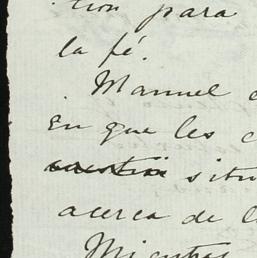 ción para
la fé.
Manuel
en que les
situ
acerca de l
Mientras